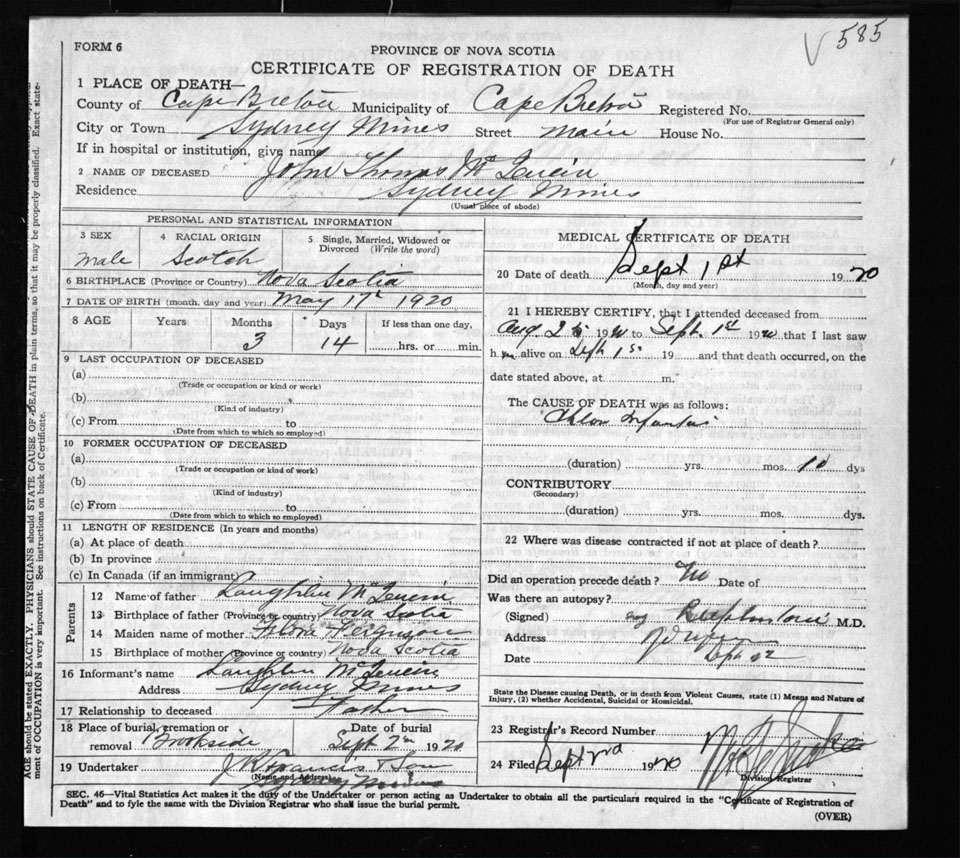 585
FORM 6
PROVINCE OF NOVA SCOTIA
CERTIFICATE OF REGISTRATION OF DEATH
1 PLACE OF DEATH—
County of Cape Breton Municipality of Cape Breton Registered No.
(For use of Registrar General only)
City or Town Sydney Mines Street Main House No.
If in hospital or institution, give name
2 NAME OF DECEASED John Thomas Mc
Residence Sydney Mines
(Usual place of abode)
PERSONAL AND STATISTICAL INFORMATION
3 SEX 4 RACIAL ORIGIN 5 Single, Married, Widowed or Divorced (Write the word)
male Scotch
6 BIRTHPLACE (Province or Country) Nova Scotia
7 DATE OF BIRTH (month, day and year) May 17th 1920
8 AGE Years Months Days If less than one day,
3 14 hrs. or min.
9 LAST OCCUPATION OF DECEASED
(a)
(Trade or occupation or kind of work)
(b)
(Kind of industry)
(c) From to
(Date from which to which so employed)
10 FORMER OCCUPATION OF DECEASED
(a)
(Trade or occupation or kind of work)
(b)
(Kind of industry)
(c) From to
(Date from which to which so employed)
11 LENGTH OF RESIDENCE (In years and months)
(a) At place of death
(b) In province
(c) In Canada (if an immigrant)
Parents
12 Name of father Laughlin Mc
13 Birthplace of father (Province or country) Nova Scotia
14 Maiden name of mother Ferguson
15 Birthplace of mother (Province or country) Nova Scotia
16 Informant's name Laughlin Mc
Address Sydney Mines
17 Relationship to deceased Father
18 Place of burial, cremation or removal Brookside Date of burial Sept 2nd 1920
19 Undertaker J R Francis & Son
(Name and Address) Sydney Mines
MEDICAL CERTIFICATE OF DEATH
20 Date of death Sept 1st 1920
(Month, day and year)
21 I HEREBY CERTIFY, that I attended deceased from
Aug 25 1920 to Sept. 1st 1920 that I last saw
h im alive on Sept 1st 19 and that death occurred, on the
date stated above, at m.
The CAUSE OF DEATH was as follows:
Infantum
(duration) yrs. mos. 10 dys
CONTRIBUTORY
(Secondary)
(duration) yrs. mos. dys.
22 Where was disease contracted if not at place of death?
Did an operation precede death? No Date of
Was there an autopsy?
(Signed) M.D.
Address
Date Sept
State the Disease causing Death, or in death from Violent Causes, state (1) Means and Nature of
Injury, (2) whether Accidental, Suicidal or Homicidal.
23 Registrar's Record Number
24 Filed Sept 2nd 1920
Division Registrar
SEC. 46—Vital Statistics Act makes it the duty of the Undertaker or person acting as Undertaker to obtain all the particulars required in the "Certificate of Registration of
Death" and to fyle the same with the Division Registrar who shall issue the burial permit.
(OVER)
AGE should be stated EXACTLY. PHYSICIANS should STATE CAUSE OF DEATH in plain terms, so that it may be properly classified. Exact state-
ment of OCCUPATION is very important. See instructions on back of Certificate.